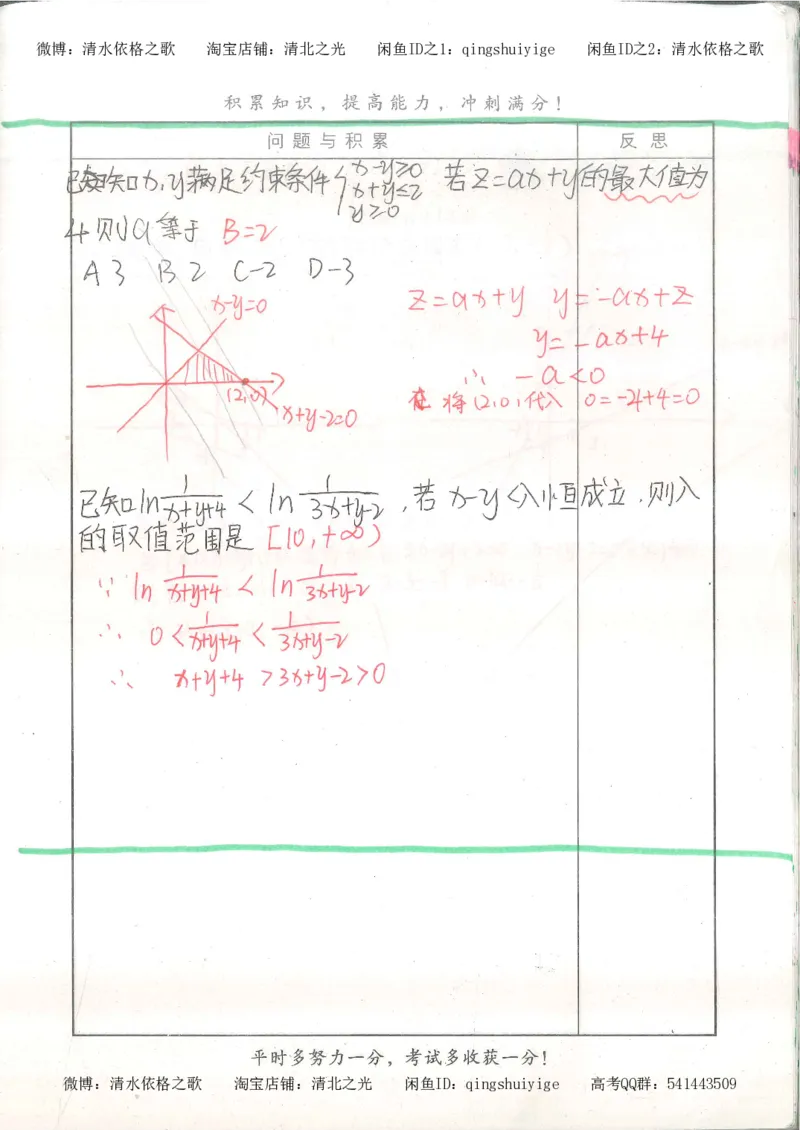 微博：清水依格之歌 淘宝店铺：清北之光 闲鱼ID之1：qingshuiyige 闲鱼ID之2：清水依格之歌
积累知识，提高能力，冲刺满分！
问题与积累 反思
已知x,y满足约束条件{x-y≥0 x+y≤2 y≥0 若z=ax+y的最大值为
4则a等于 B=2
A 3 B 2 C-2 D-3
x-y=0
z=ax+y y=-ax+z
y=-ax+4
∴ -a<0
(2,0)
将(2,0)代入 0=-4+4=0
x+y-2=0
已知ln 1/(x+y+4) < ln 1/(3x+y-2)，若x-y<λ恒成立.则λ
的取值范围是[10,+∞)
∵ ln 1/(x+y+4) < ln 1/(3x+y-2)
∴ 0< 1/(x+y+4) < 1/(3x+y-2)
∴ x+y+4 >3x+y-2>0
平时多努力一分，考试多收获一分！
微博：清水依格之歌 淘宝店铺：清北之光 闲鱼ID：qingshuiyige 高考QQ群：541443509